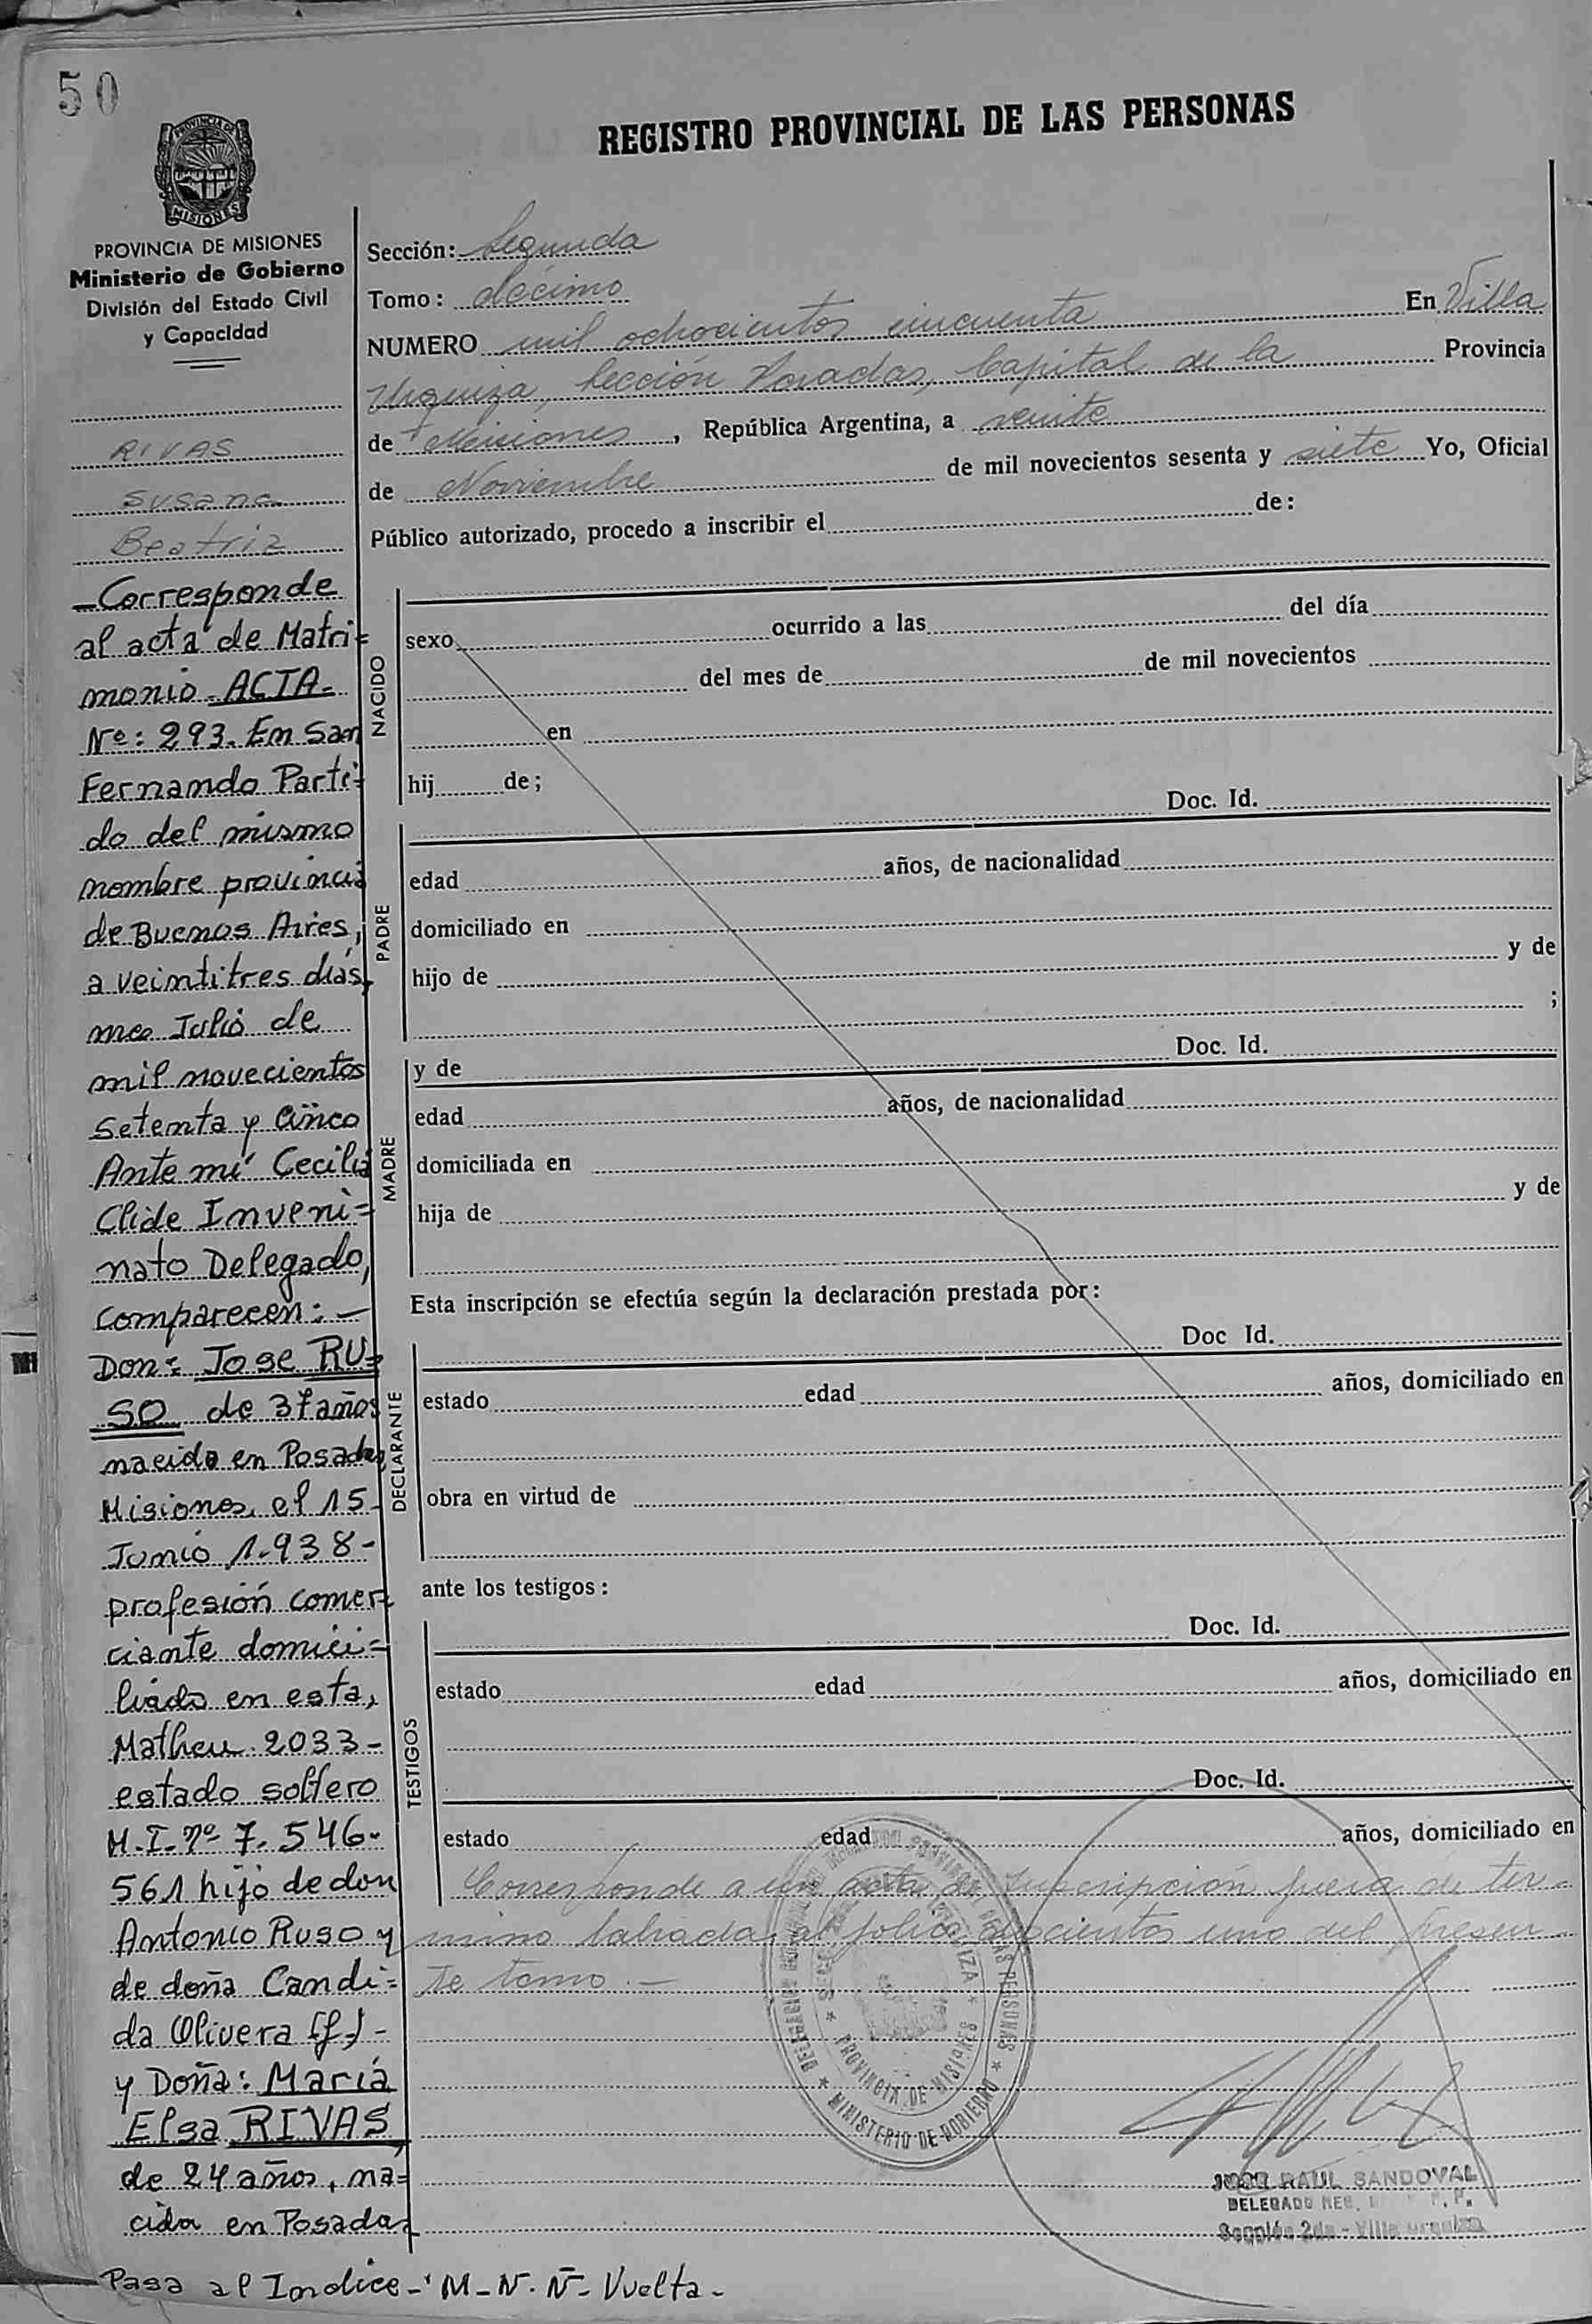 50
REGISTRO PROVINCIAL DE LAS PERSONAS
PROVINCIA DE
MISIONES
PROVINCIA DE MISIONES
Ministerio de Gobierno
División del Estado Civil
y Capacidad
RIVAS
Susana
Beatriz
-Corresponde
al acta de Matri=
monio ACTA-
Nº: 293. En San
Fernando Parti=
do del mismo
nombre provincia
de Buenos Aires,
a veintitres dias,
mes Julio de
mil novecientos
setenta y cinco
Ante mi Cecilia
Clide Inveni=
nato Delegado,
comparecen:-
Don: Jose RU=
SO de 37 años
nacido en Posadas
Misiones, el 15-
Junio 1.938-
profesión comer=
ciante domici=
liado en esta,
Matheu 2033-
estado soltero
M.I. nº 7.546-
561 hijo de don
Antonio Ruso y
de doña Candi=
da Olivera (f)-
y Doña: Maria
Elsa RIVAS
de 24 años, na=
cida en Posadas
Pasa al Indice-'M-N-Ñ- Vuelta-
Sección: Segunda
Tomo: décimo
NUMERO mil ochocientos cincuenta En Villa
Urquiza, Sección Posadas, Capital de la Provincia
de Misiones, República Argentina, a veinte
de Noviembre de mil novecientos sesenta y siete Yo, Oficial
Público autorizado, procedo a inscribir el de:
NACIDO
sexo ocurrido a las del día
del mes de de mil novecientos
en
hij de;
Doc. Id.
PADRE
edad años, de nacionalidad
domiciliado en
hijo de y de
;
y de Doc. Id.
MADRE
edad años, de nacionalidad
domiciliada en
hija de y de
Esta inscripción se efectúa según la declaración prestada por:
Doc Id.
DECLARANTE
estado edad años, domiciliado en
obra en virtud de
ante los testigos:
Doc. Id.
TESTIGOS
estado edad años, domiciliado en
Doc. Id.
estado edad años, domiciliado en
Corresponde a un acta de inscripción fuera de ter-
mino labrada al folio doscientos uno del presen
te tomo.-
PROVINCIA DE MISIONES
MINISTERIO DE GOBIERNO
JOSE RAUL SANDOVAL
DELEGADO REG.
Sección 2da - Villa Urquiza